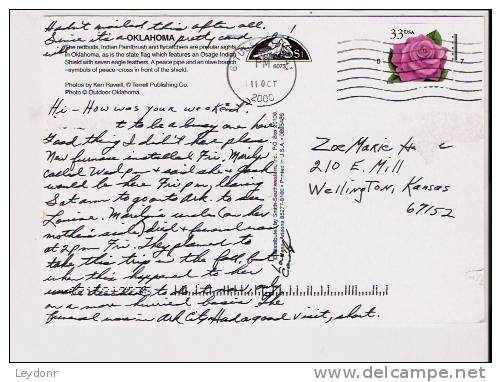 Hadn't mailed this after all.
Since it's a pretty card
will
OKLAHOMA
The redbuds, Indian Paintbrush and flycatchers are popular sights
in Oklahoma, as is the state flag which features an Osage Indian
Shield with seven eagle feathers. A peace pipe and an olive branch
–symbols of peace–cross in front of the shield.
Photos by Ken Ravell, © Terrell Publishing Co.
Photo © Outdoor Oklahoma
PM
11 OCT
2000
33 USA
Hi - How was your weekend?
t to be a busy one here
Good thing I didn't have plans
New furnace installed Fri. Marilyn
called Wed pm & said she & Jack
would be here Fri pm, leaving
Sat am to go on to Ark. to see
Louise. Marilyn's uncle (on her
mother's side) died & funeral was
at 2 pm Fri. They planned to
take this trip in the fall, but
when this happened to her
uncle
on a more hurried basis. The
funeral was in Ark City. Had a good visit, short.
Zoe Marie
210 E. Mill
Wellington, Kansas
67152
Distributed by Smith-Southwestern, Inc.
Printed in U.S.A.
Leydonr
http://www.delcampe.net